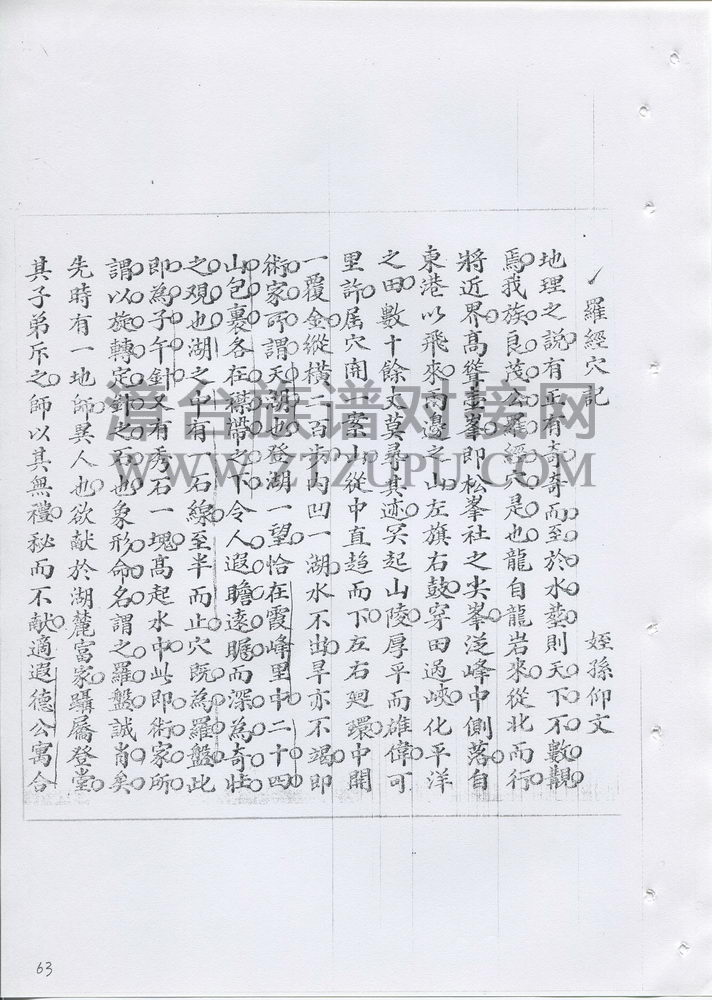 羅經穴記
姪孫仰文
地理之說有正有奇奇而至於水塟則天下不數觀
焉我族良茂公羅經穴是也龍自龍岩來從北而行
將近界高聳壹峯即松峯社之尖峯從峰中側落自
東港以飛來南邊之山左旗右鼓穿田過峽化平洋
之田數十餘丈莫尋其迹突起山陵厚平而雄偉可
里許居穴開一案山從中直趋而下左右廻環中開
一覆金縱橫二百內凹一湖水不出旱亦不竭即
術家所謂天湖也登湖一望恰在霞峰里中二十四
山包裹各在帶之下令人遐瞻遠矚而深為奇壯
之观也湖之中有一石線至半而止穴既為羅盤此
即為子午針又有秀石一塊高起水中此即術家所
謂以旋轉定針之也象形命名謂之羅盤誠肖矣
先時有一地師異人也欲献於湖麓富家躡屩登堂
其子弟斥之師以其無禮秘而不献適遐德公寓合
澶台族谱对接网
WWW.ZTZUPU.COM
63